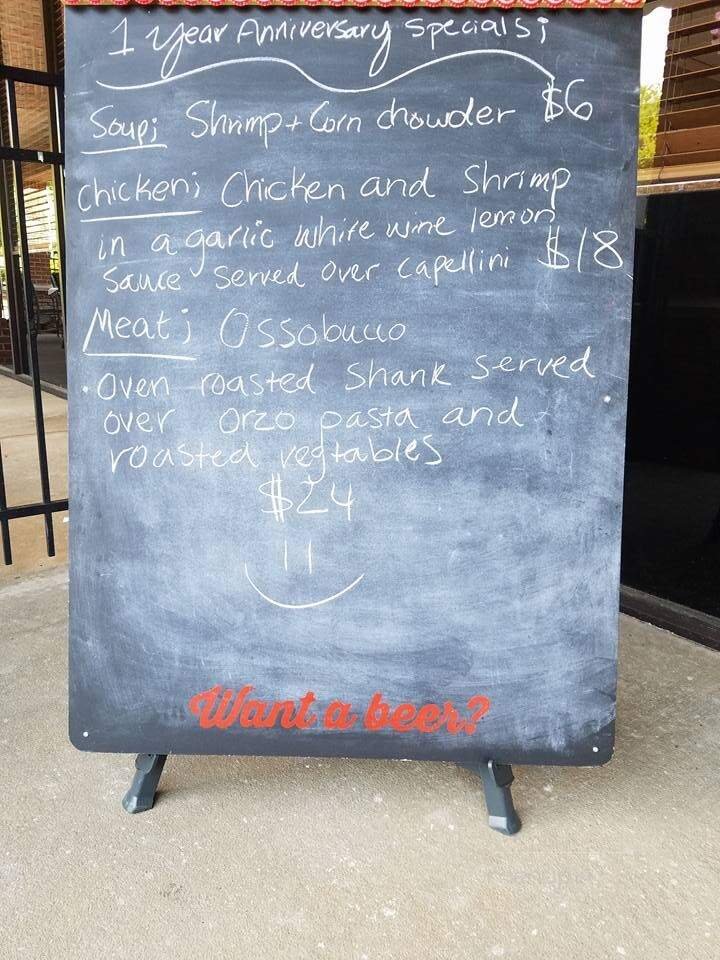 1 Year Anniversary Specials;
Soup; Shrimp + Corn chowder $6
Chicken; Chicken and Shrimp
in a garlic white wine lemon
Sauce Served Over Capellini $18
Meat; Ossobucco
• Oven roasted Shank served
over orzo pasta and
roasted vegtables
$24
Want a beer?